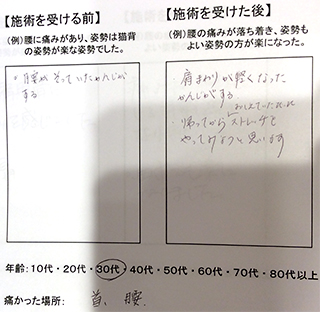 【施術を受ける前】
(例)腰に痛みがあり、姿勢は猫背
の姿勢が楽な姿勢でした。
・腰が張っていたかんじが
する
【施術を受けた後】
(例)腰の痛みが落ち着き、姿勢も
よい姿勢の方が楽になった。
・肩まわりが軽くなった
かんじがする
おしえていただいた
・帰ってからストレッチを
やってみようと思います
年齢:10代・20代・30代・40代・50代・60代・70代・80代以上
痛かった場所: 首、腰